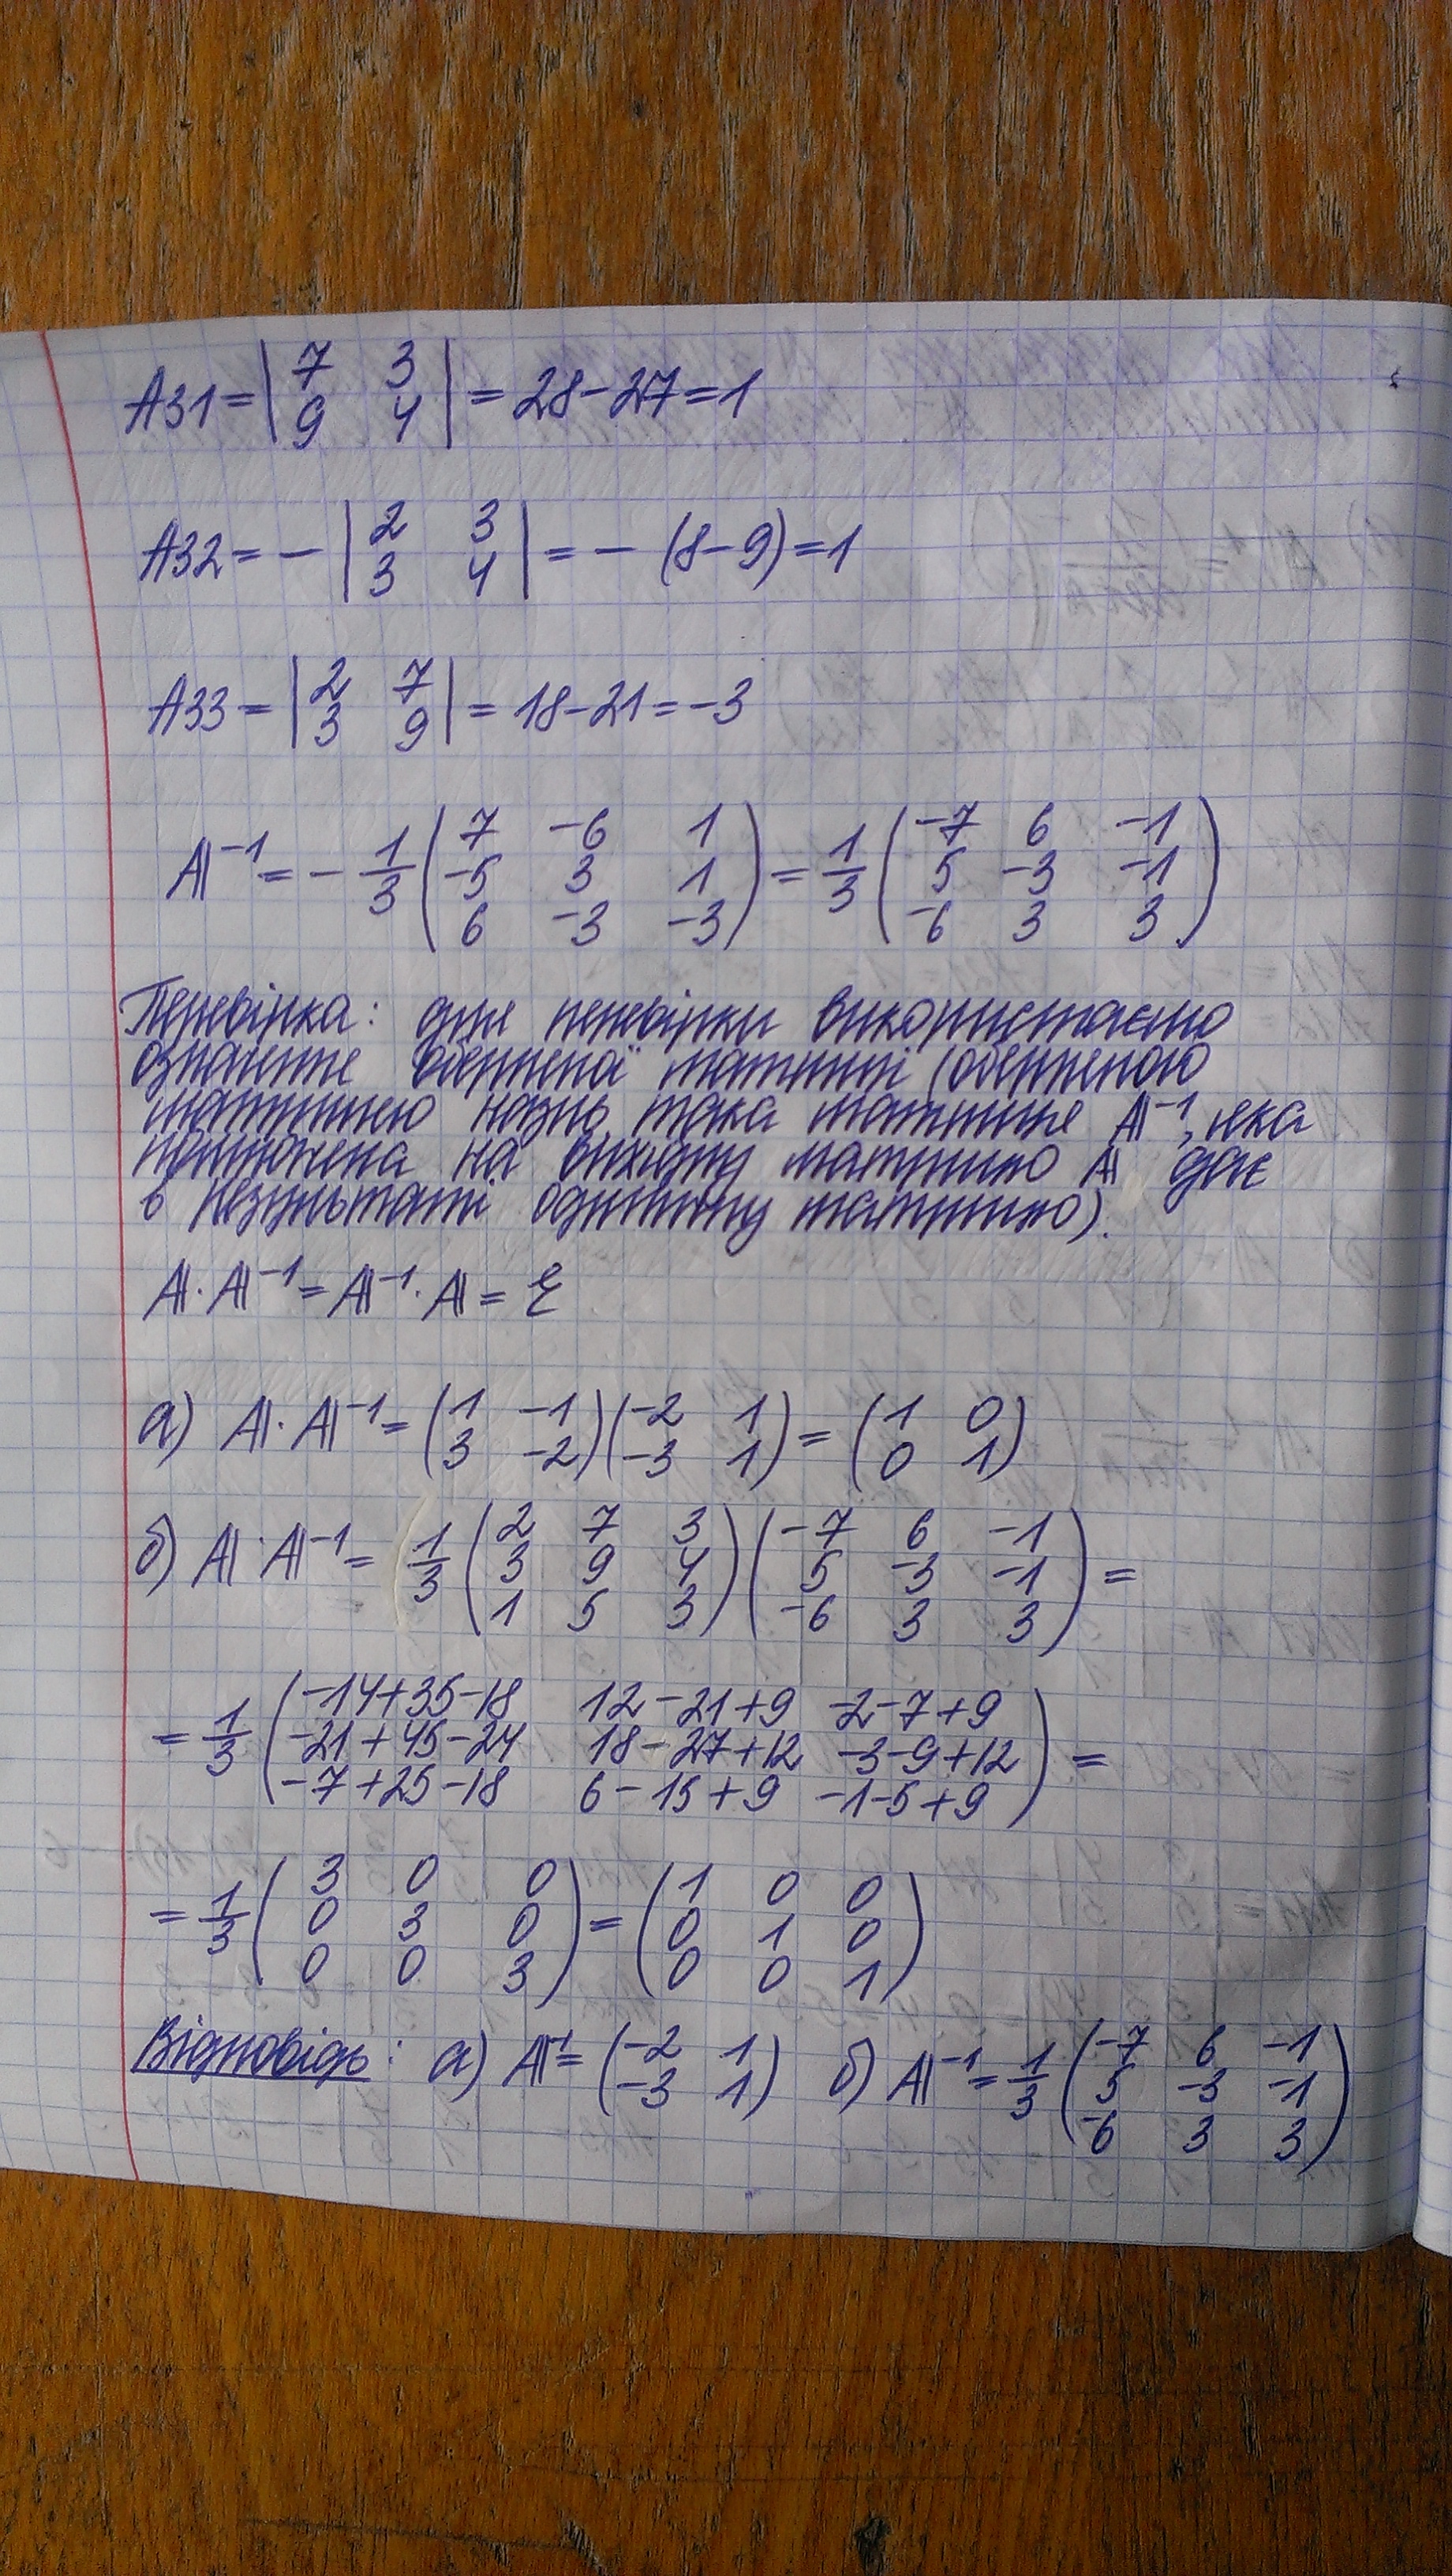 A31 = | 7 3 | = 28 - 27 = 1
| 9 4 |
A32 = - | 2 3 | = - (8 - 9) = 1
| 3 4 |
A33 = | 2 7 | = 18 - 21 = -3
| 3 9 |
A⁻¹ = - 1/3 ( 7 -6 1 ) = 1/3 ( -7 6 -1 )
( -5 3 1 ) ( 5 -3 -1 )
( 6 -3 -3 ) ( -6 3 3 )
Перевірка: для перевірки використаємо
означення оберненої матриці (оберненою
матрицею назив така матриця A⁻¹, яка
помножена на вихідну матрицю A дає
в результаті одиничну матрицю).
A · A⁻¹ = A⁻¹ · A = E
а) A · A⁻¹ = ( 1 -1 ) ( -2 1 ) = ( 1 0 )
( 3 -2 ) ( -3 1 ) ( 0 1 )
б) A · A⁻¹ = 1/3 ( 2 7 3 ) ( -7 6 -1 ) =
( 3 9 4 ) ( 5 -3 -1 )
( 1 5 3 ) ( -6 3 3 )
= 1/3 ( -14+35-18 12-21+9 -2-7+9 ) =
( -21+45-24 18-27+12 -3-9+12 )
( -7+25-18 6-15+9 -1-5+9 )
= 1/3 ( 3 0 0 ) = ( 1 0 0 )
( 0 3 0 ) ( 0 1 0 )
( 0 0 3 ) ( 0 0 1 )
Відповідь: а) A⁻¹ = ( -2 1 ) б) A⁻¹ = 1/3 ( -7 6 -1 )
( -3 1 ) ( 5 -3 -1 )
( -6 3 3 )